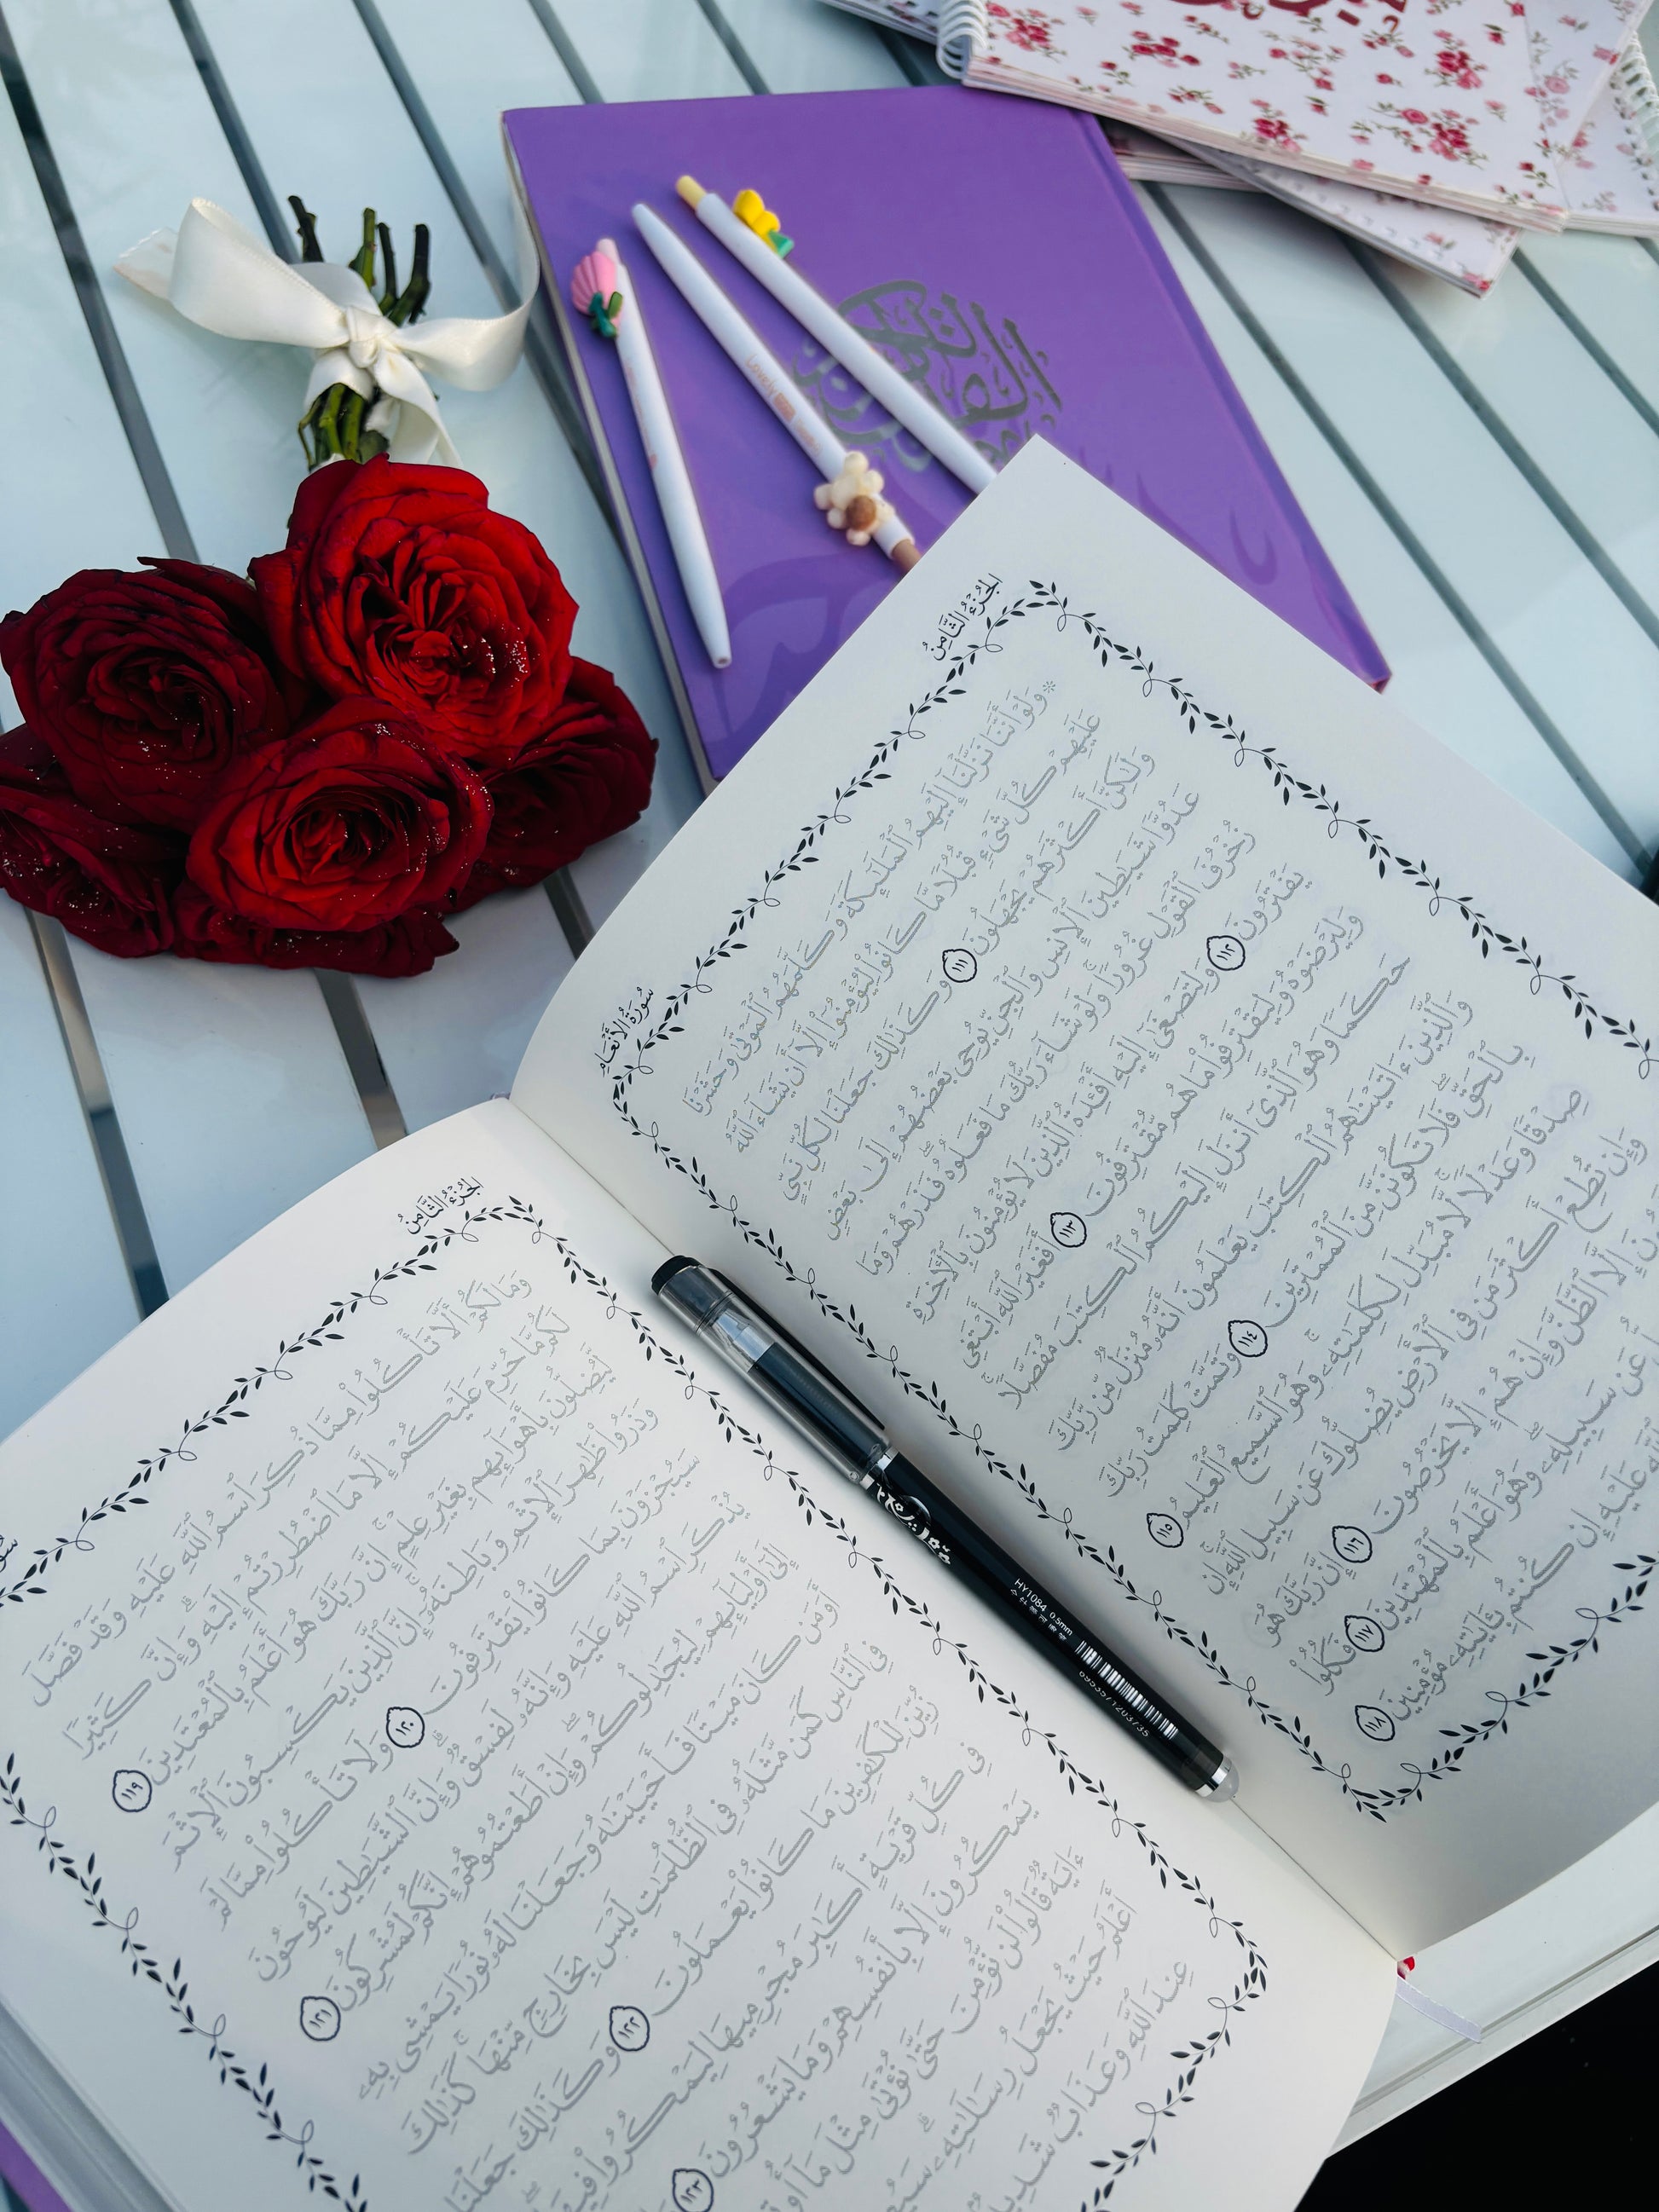 القرآن الكريم
Lovely
الجُزْءُ الثَّامِنُ
سُورَةُ الأَنْعَامِ
۞ وَلَوْ أَنَّنَا نَزَّلْنَآ إِلَيْهِمُ ٱلْمَلَٰٓئِكَةَ وَكَلَّمَهُمُ ٱلْمَوْتَىٰ وَحَشَرْنَا
عَلَيْهِمْ كُلَّ شَىْءٍ قُبُلًا مَّا كَانُوا۟ لِيُؤْمِنُوٓا۟ إِلَّآ أَن يَشَآءَ ٱللَّهُ
وَلَٰكِنَّ أَكْثَرَهُمْ يَجْهَلُونَ ١١١ وَكَذَٰلِكَ جَعَلْنَا لِكُلِّ نَبِىٍّ
عَدُوًّا شَيَٰطِينَ ٱلْإِنسِ وَٱلْجِنِّ يُوحِى بَعْضُهُمْ إِلَىٰ بَعْضٍ
زُخْرُفَ ٱلْقَوْلِ غُرُورًا ۚ وَلَوْ شَآءَ رَبُّكَ مَا فَعَلُوهُ ۖ فَذَرْهُمْ وَمَا
يَفْتَرُونَ ١١٢ وَلِتَصْغَىٰٓ إِلَيْهِ أَفْـِٔدَةُ ٱلَّذِينَ لَا يُؤْمِنُونَ بِٱلْءَاخِرَةِ
وَلِيَرْضَوْهُ وَلِيَقْتَرِفُوا۟ مَا هُم مُّقْتَرِفُونَ ١١٣ أَفَغَيْرَ ٱللَّهِ أَبْتَغِى
حَكَمًا وَهُوَ ٱلَّذِىٓ أَنزَلَ إِلَيْكُمُ ٱلْكِتَٰبَ مُفَصَّلًا ۚ
وَٱلَّذِينَ ءَاتَيْنَٰهُمُ ٱلْكِتَٰبَ يَعْلَمُونَ أَنَّهُۥ مُنَزَّلٌ مِّن رَّبِّكَ
بِٱلْحَقِّ ۖ فَلَا تَكُونَنَّ مِنَ ٱلْمُمْتَرِينَ ١١٤ وَتَمَّتْ كَلِمَتُ رَبِّكَ
صِدْقًا وَعَدْلًا ۚ لَّا مُبَدِّلَ لِكَلِمَٰتِهِۦ ۚ وَهُوَ ٱلسَّمِيعُ ٱلْعَلِيمُ ١١٥
وَإِن تُطِعْ أَكْثَرَ مَن فِى ٱلْأَرْضِ يُضِلُّوكَ عَن سَبِيلِ ٱللَّهِ ۚ إِن
إِلَّا ٱلظَّنَّ وَإِنْ هُمْ إِلَّا يَخْرُصُونَ ١١٦ إِنَّ رَبَّكَ هُوَ
عَن سَبِيلِهِۦ ۖ وَهُوَ أَعْلَمُ بِٱلْمُهْتَدِينَ ١١٧ فَكُلُوا۟
عَلَيْهِ إِن كُنتُم بِـَٔايَٰتِهِۦ مُؤْمِنِينَ ١١٨
HY1084 0.5mm
الجُزْءُ الثَّامِنُ
وَمَا لَكُمْ أَلَّا تَأْكُلُوا۟ مِمَّا ذُكِرَ ٱسْمُ ٱللَّهِ عَلَيْهِ وَقَدْ فَصَّلَ
لَكُم مَّا حَرَّمَ عَلَيْكُمْ إِلَّا مَا ٱضْطُرِرْتُمْ إِلَيْهِ ۗ وَإِنَّ كَثِيرًا
لَّيُضِلُّونَ بِأَهْوَآئِهِم بِغَيْرِ عِلْمٍ ۗ إِنَّ رَبَّكَ هُوَ أَعْلَمُ بِٱلْمُعْتَدِينَ ١١٩
وَذَرُوا۟ ظَٰهِرَ ٱلْإِثْمِ وَبَاطِنَهُۥٓ ۚ إِنَّ ٱلَّذِينَ يَكْسِبُونَ ٱلْإِثْمَ
سَيُجْزَوْنَ بِمَا كَانُوا۟ يَقْتَرِفُونَ ١٢٠ وَلَا تَأْكُلُوا۟ مِمَّا لَمْ
يُذْكَرِ ٱسْمُ ٱللَّهِ عَلَيْهِ وَإِنَّهُۥ لَفِسْقٌ ۗ وَإِنَّ ٱلشَّيَٰطِينَ لَيُوحُونَ
إِلَىٰٓ أَوْلِيَآئِهِمْ لِيُجَٰدِلُوكُمْ ۖ وَإِنْ أَطَعْتُمُوهُمْ إِنَّكُمْ لَمُشْرِكُونَ ١٢١
أَوَمَن كَانَ مَيْتًا فَأَحْيَيْنَٰهُ وَجَعَلْنَا لَهُۥ نُورًا يَمْشِى بِهِۦ
فِى ٱلنَّاسِ كَمَن مَّثَلُهُۥ فِى ٱلظُّلُمَٰتِ لَيْسَ بِخَارِجٍ مِّنْهَا ۚ كَذَٰلِكَ
زُيِّنَ لِلْكَٰفِرِينَ مَا كَانُوا۟ يَعْمَلُونَ ١٢٢ وَكَذَٰلِكَ جَعَلْنَا
فِى كُلِّ قَرْيَةٍ أَكَٰبِرَ مُجْرِمِيهَا لِيَمْكُرُوا۟ فِيهَا
يَمْكُرُونَ إِلَّا بِأَنفُسِهِمْ وَمَا يَشْعُرُونَ ١٢٣
ءَايَةٌ قَالُوا۟ لَن نُّؤْمِنَ حَتَّىٰ نُؤْتَىٰ مِثْلَ مَآ
أَعْلَمُ حَيْثُ يَجْعَلُ رِسَالَتَهُۥ ۗ
عِندَ ٱللَّهِ وَعَذَابٌ